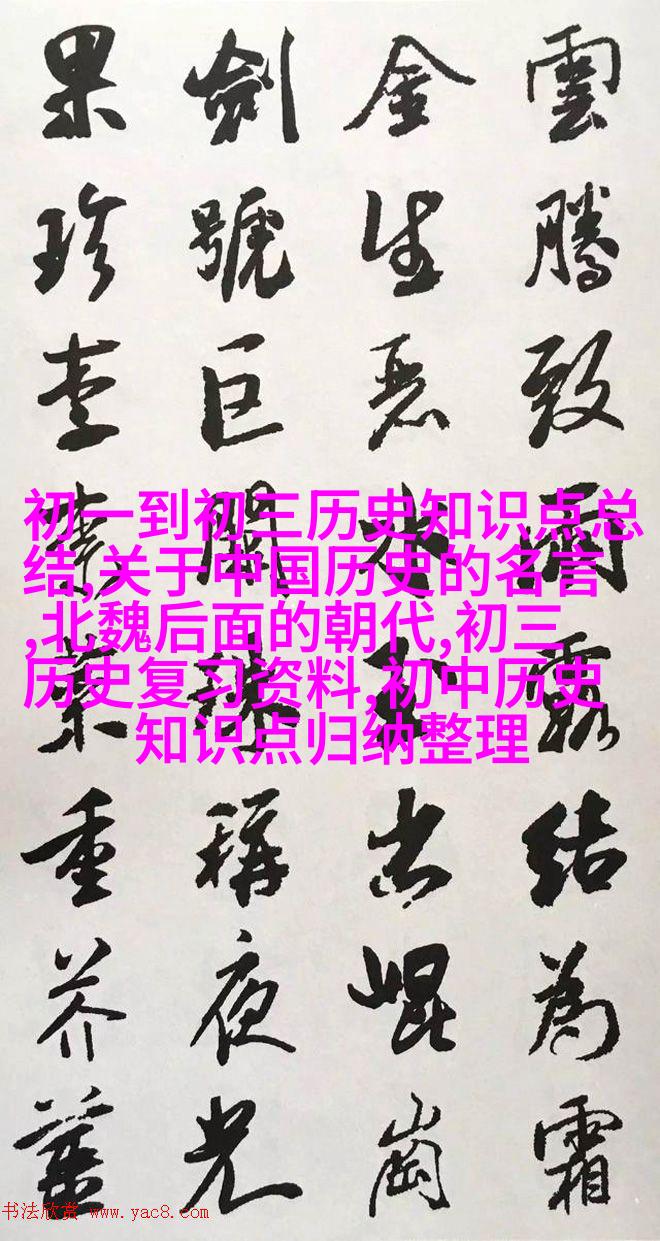 雲騰致雨露結為霜
金生麗水玉出崐崗
劍號巨闕珠稱夜光
果珍李柰菜重芥薑
初一到初三历史知识点总
结,关于中国历史的名言
,北魏后面的朝代,初三
历史复习资料,初中历史
知识点归纳整理
书法欣赏 www.yac8.com